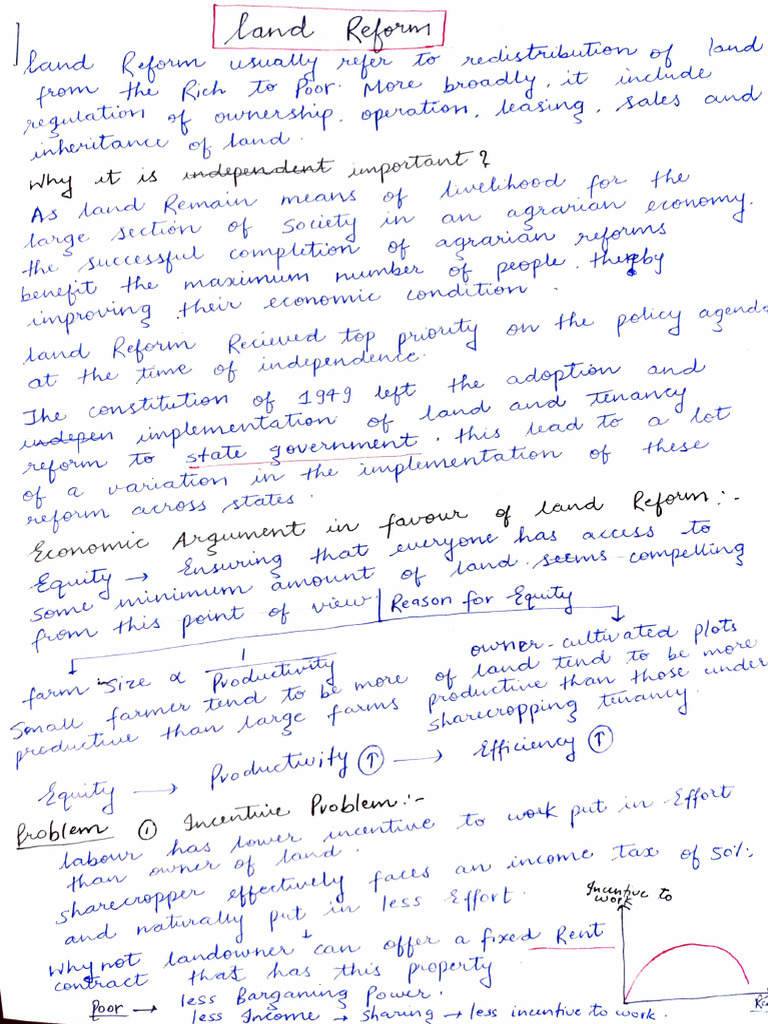 Land Reform
Land Reform usually refer to redistribution of land
from the Rich to Poor. More broadly, it include
regulation of ownership, operation, leasing, sales and
inheritance of land.
Why it is independent important?
As land Remain means of livelihood for the
large section of Society in an agrarian economy.
the successful completion of agrarian reforms
benefit the maximum number of people, thereby
improving their economic condition.
Land Reform Recieved top priority on the policy agenda
at the time of independence.
The constitution of 1949 left the adoption and
indepen implementation of land and tenancy
reform to state government. this lead to a lot
of a variation in the implementation of these
reform across states.
Economic Argument in favour of land Reform:-
Equity → Ensuring that everyone has access to
some minimum amount of land seems compelling
from this point of view
Reason for Equity
farm size ∝ 1/Productivity
Small farmer tend to be more
productive than large farms
owner-cultivated plots
of land tend to be more
productive than those under
sharecropping tenancy.
Equity → Productivity ↑ → Efficiency ↑
Problem ① Incentive Problem:-
labour has lower incentive to work put in Effort
than owner of land.
sharecropper effectively faces an income tax of 50%,
and naturally put in less Effort.
Why not landowner can offer a fixed Rent
contract that has this property
Poor → less Barganing Power.
less Income → sharing → less incentive to work.
Incentive to
work